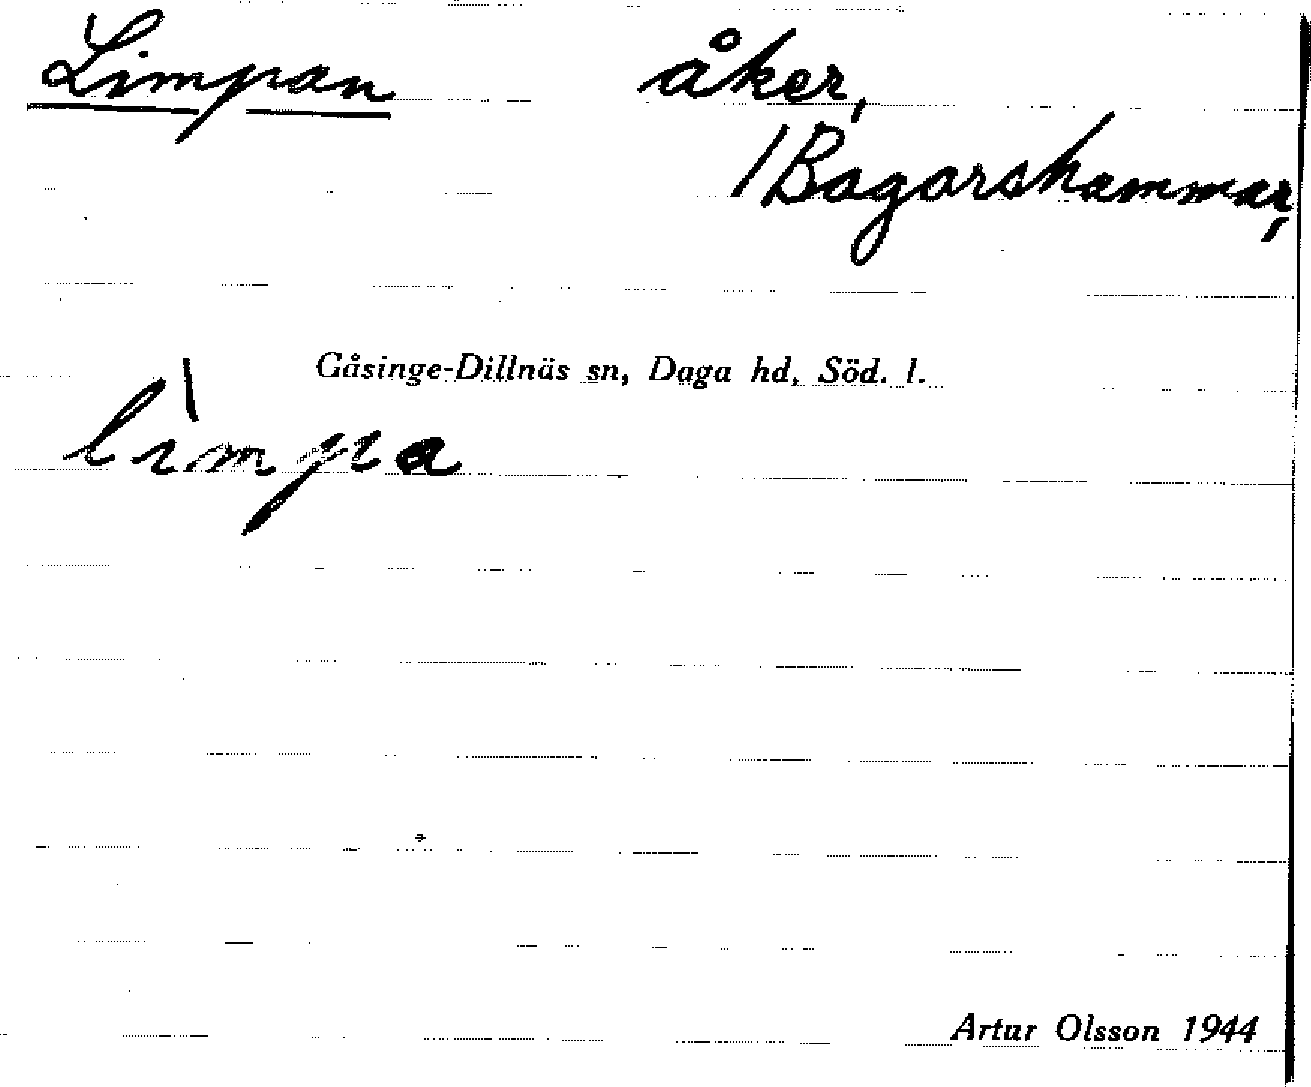 Limpan åker,
/Bagarshammar,
Gåsinge-Dillnäs sn, Daga hd, Söd. l.
lìmpa
Artur Olsson 1944